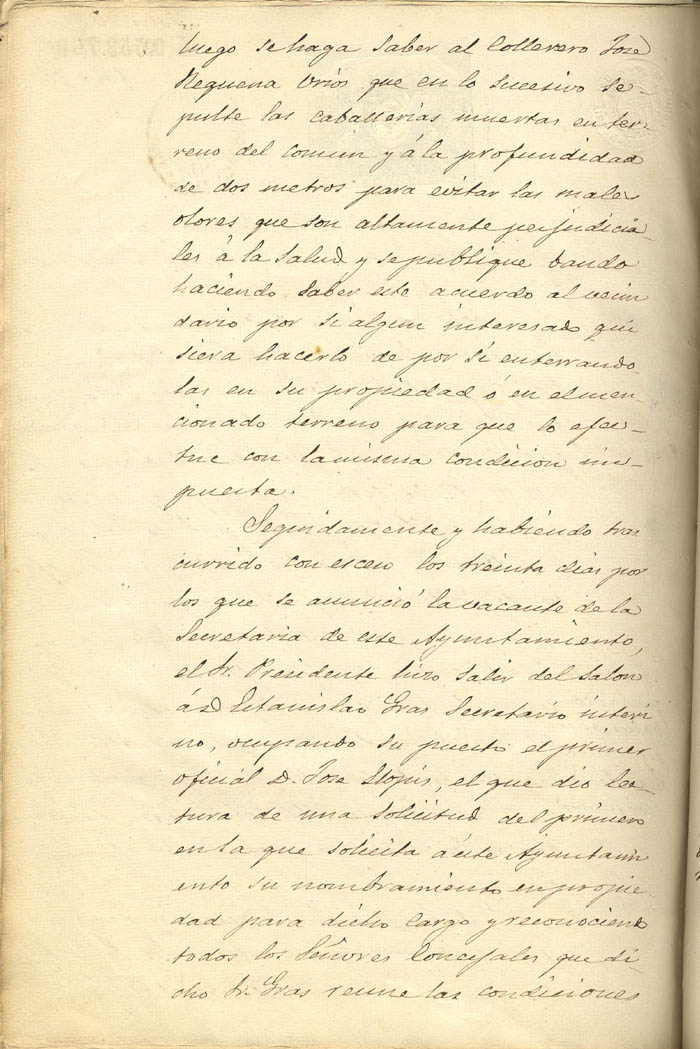 luego se haga saber al Collerero José
Requena Orios que en lo sucesivo se-
pulte las caballerías muertas en ter-
reno del comun y á la profundidad
de dos metros para evitar las malos
olores que son altamente perjudicia-
les á la salud y se publique bando
haciendo saber este acuerdo al vecin
dario por si algun interesado qui
siera hacerlo de por si enterrando
las en su propiedad ó en el men-
cionado terreno para que lo efec-
tue con la misma condicion im-
puesta.
Seguidamente y habiendo tras
currido con esceso los treinta dias por
los que se anunció la vacante de la
Secretaria de este Ayuntamiento,
el Sr. Presidente hizo salir del Salon
á D Estanislao Gras Secretario interi
no, ocupando su puesto el primer
oficial D. Jose Llopis, el que dio lec-
tura de una solicitud del primero
en la que solicita á este Ayuntami
ento su nombramiento en propie-
dad para dicho cargo y reconociendo
todos los Señores Concejales que di
cho Sr. Gras reune las condiciones